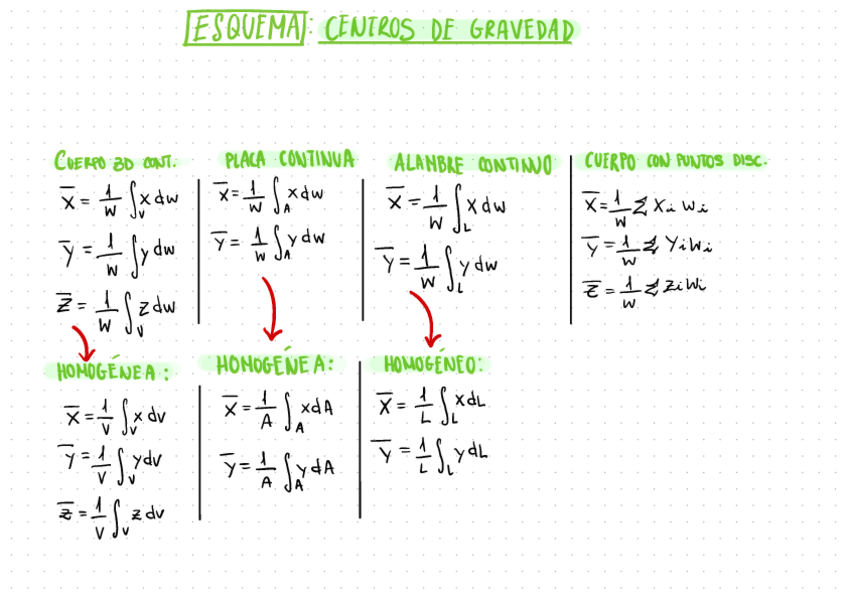 ESQUEMA: CENTROS DE GRAVEDAD
CUERPO 3D CONT.
X̅ = 1/W ∫_V x dw
Y̅ = 1/W ∫ y dw
Z̅ = 1/W ∫_V z dw
HOMOGÉNEA:
X̅ = 1/V ∫_V x dv
Y̅ = 1/V ∫_V y dv
Z̅ = 1/V ∫_V z dv
PLACA CONTINUA
X̅ = 1/W ∫_A x dw
Y̅ = 1/W ∫_A y dw
HOMOGÉNEA:
X̅ = 1/A ∫_A x dA
Y̅ = 1/A ∫_A y dA
ALAMBRE CONTINUO
X̅ = 1/W ∫_L x dw
Y̅ = 1/W ∫_L y dw
HOMOGÉNEO:
X̅ = 1/L ∫_L x dL
Y̅ = 1/L ∫_L y dL
CUERPO CON PUNTOS DISC.
X̅ = 1/W Σ Xi Wi
Y̅ = 1/W Σ Yi Wi
Z̅ = 1/W Σ Zi Wi